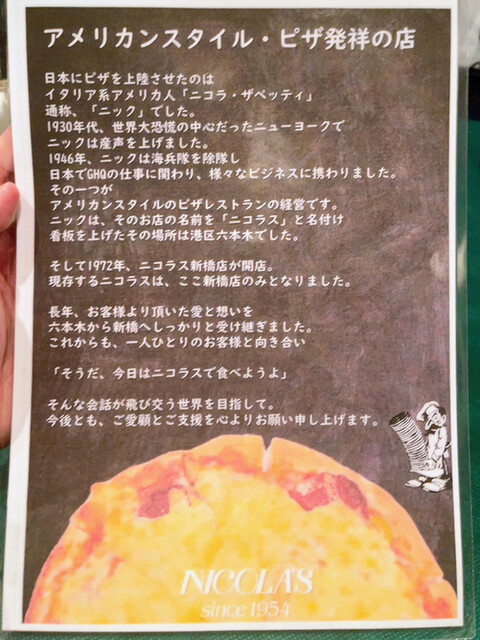 アメリカンスタイル・ピザ発祥の店
日本にピザを上陸させたのは
イタリア系アメリカ人「ニコラ・ザペッティ」
通称、「ニック」でした。
1930年代、世界大恐慌の中心だったニューヨークで
ニックは産声を上げました。
1946年、ニックは海兵隊を除隊し
日本でGHQの仕事に関わり、様々なビジネスに携わりました。
その一つが
アメリカンスタイルのピザレストランの経営です。
ニックは、そのお店の名前を「ニコラス」と名付け
看板を上げたその場所は港区六本木でした。
そして1972年、ニコラス新橋店が開店。
現存するニコラスは、ここ新橋店のみとなりました。
長年、お客様より頂いた愛と想いを
六本木から新橋へしっかりと受け継ぎました。
これからも、一人ひとりのお客様と向き合い
「そうだ、今日はニコラスで食べようよ」
そんな会話が飛び交う世界を目指して。
今後とも、ご愛顧とご支援を心よりお願い申し上げます。
NICOLA'S
since 1954